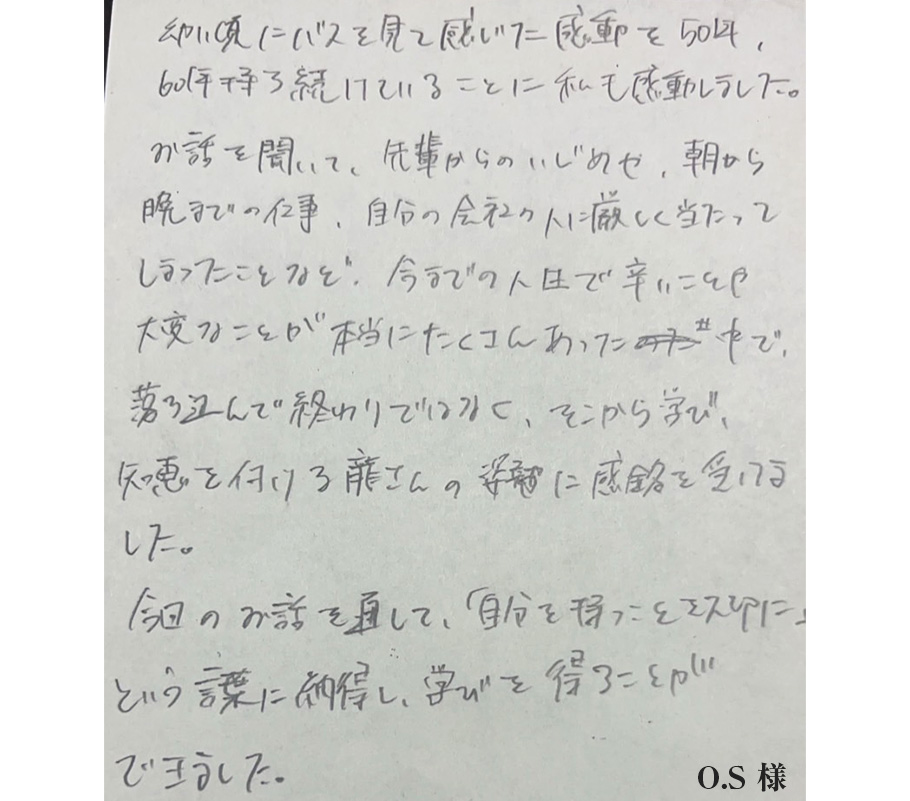 幼い頃にバスを見て感じた感動を50年,
60年持ち続けていることに私も感動しました。
お話を聞いて、先輩からのいじめや、朝から
晩までの仕事、自分の会社の人に厳しく当たって
しまったことなど、今までの人生で辛いことや
大変なことが本当にたくさんあった中で、
落ち込んで終わりではなく、そこから学び、
知恵を付ける龍さんの姿勢に感銘を受けま
した。
今回のお話を通して、「自分を持つことを大切に」
という言葉に納得し、学びを得ることが
できました。
O.S 様